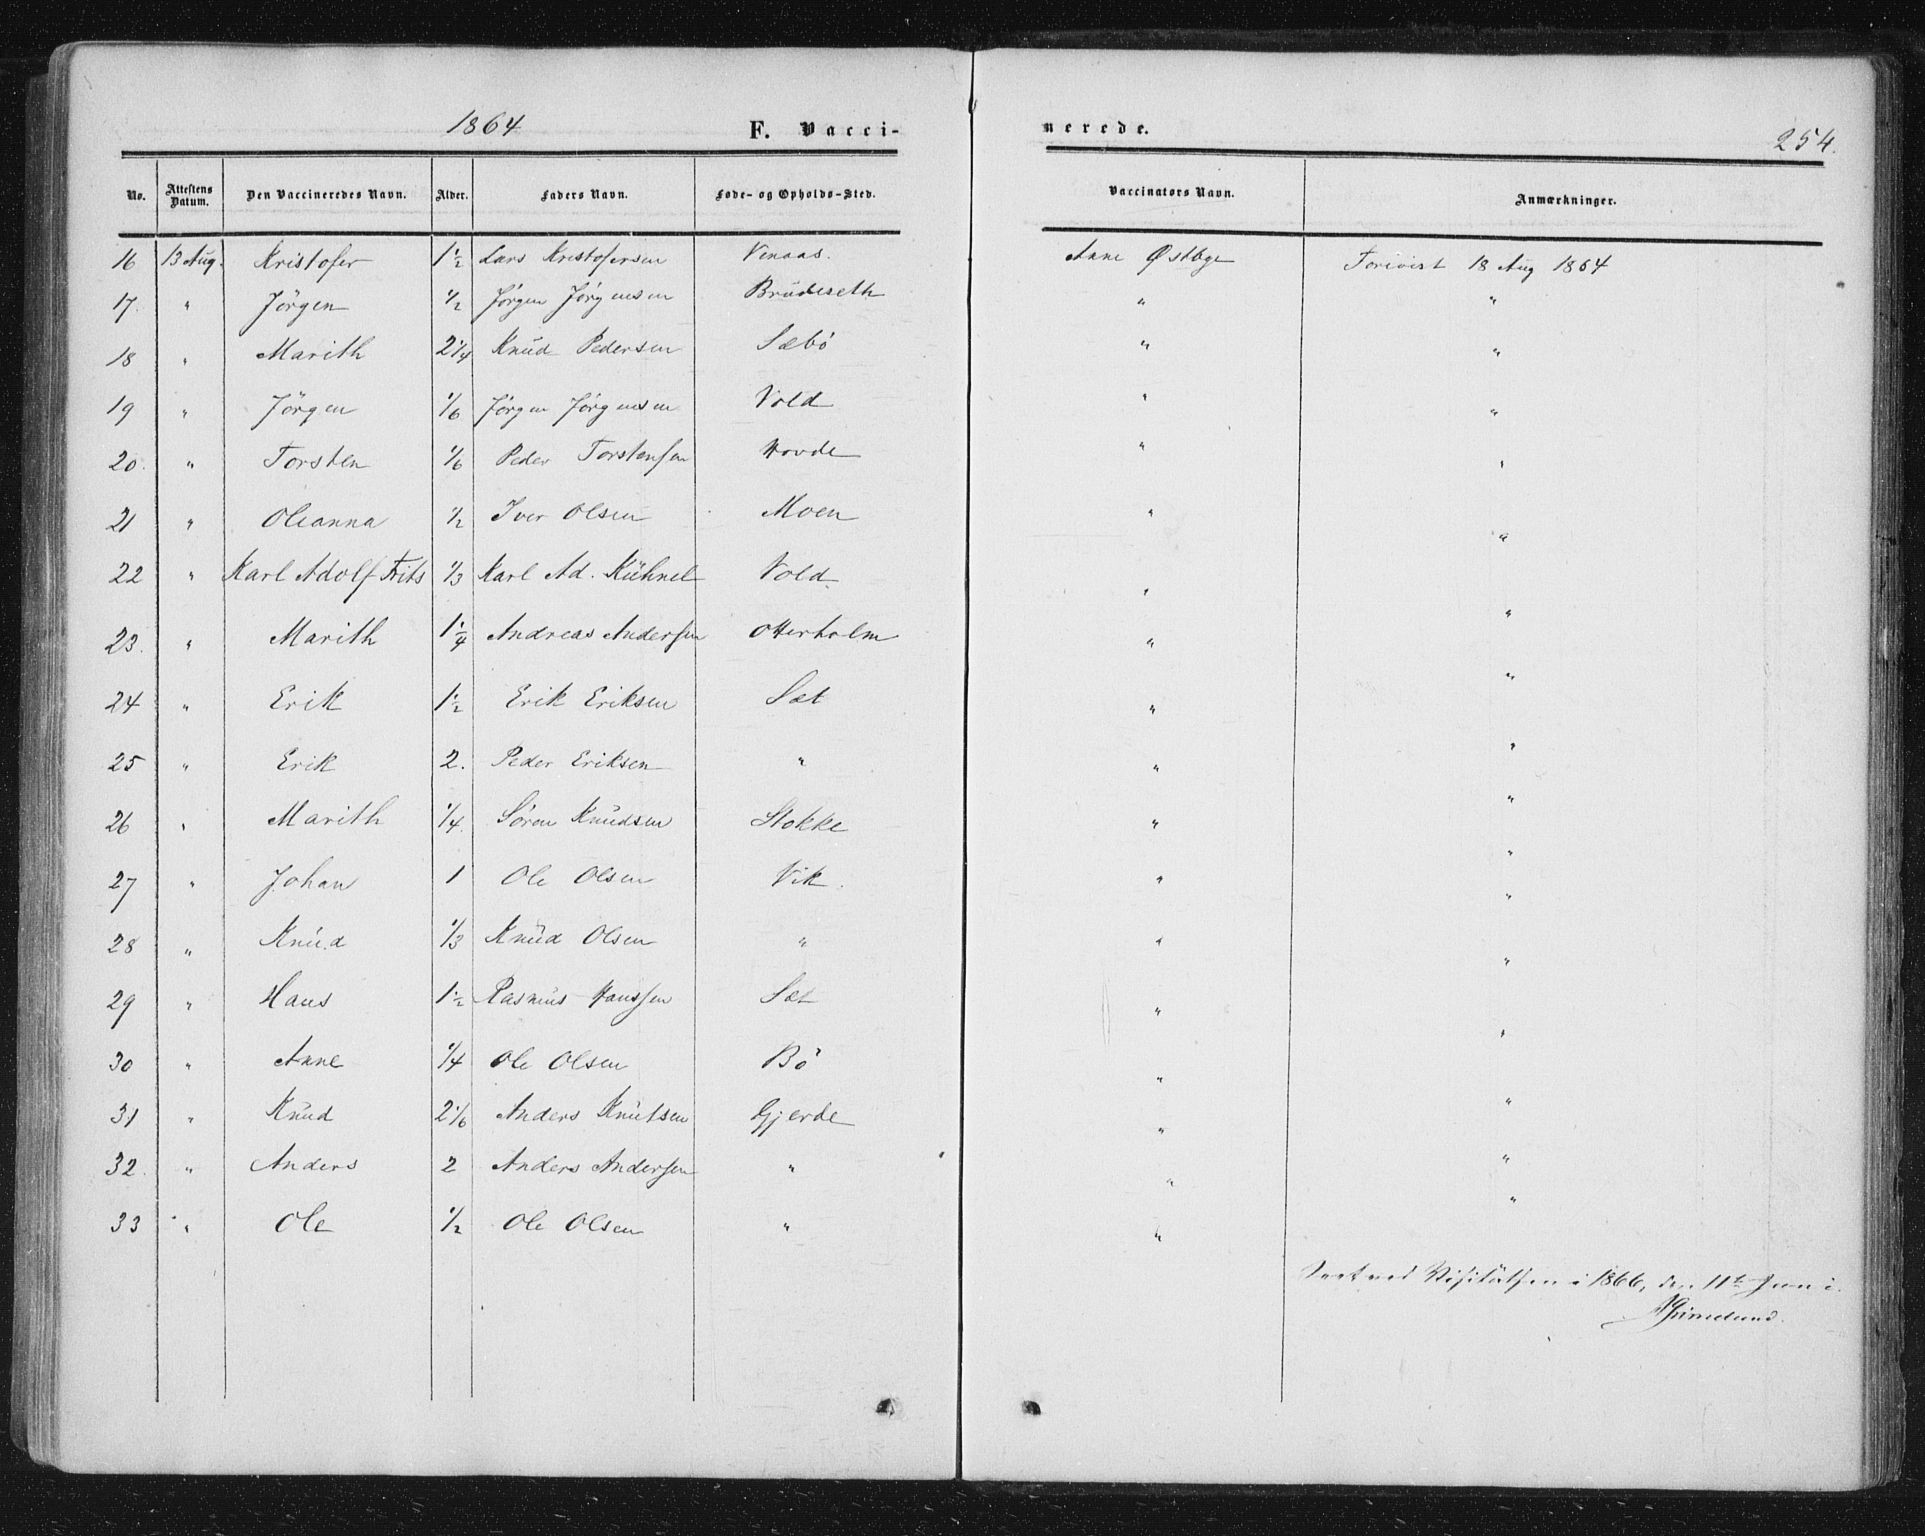 1864 F. Vacci- nerede. 254.
No. Attestens Datum. Den Vaccineredes Navn. Alder. Faders Navn. Føde- og Opholds-Sted. Vaccinators Navn. Anmærkninger.
16 13 Aug. Kristofer 1 1/2 Lars Kristofersen Venaas. Anne Østbye Foreviist 18 Aug 1864
17. " Jörgen 1/2 Jörgen Jörgensen Brüdeseth " "
18 " Marith 2 1/4 Knud Pedersen Sæbö " "
19 " Jörgen 1/6 Jörgen Jörgensen Vold " "
20. " Torsten 1/6 Peder Torstensen Hovde " "
21 " Oleanna 1/2 Iver Olsen Moen " "
22 " Karl Adolf Frits 1/3 Karl Ad. Kühnel Vold. " "
23. " Marith 1 1/4 Andreas Andersen Otterholm " "
24 " Erik 1 1/2 Erik Eriksen Sæt " "
25 " Erik 2. Peder Eriksen " " "
26 " Marith 1/4 Sören Knudsen Stokke " "
27 " Johan 1 Ole Olsen Vik. " "
28 " Knud 1/3 Knud Olsen " " "
29 " Hans 1 1/2 Rasmus Hanssen Sæt " "
30 " Anne 1/4 Ole Olsen Bö " "
31 " Knud 2 1/6 Anders Knutsen Gjerde " "
32. " Anders 2 Anders Andersen " " "
33 " Ole 1/2 Ole Olsen " " "
Seet ved Visitatsen i 1866, den 11te Juni.
Grimelund.